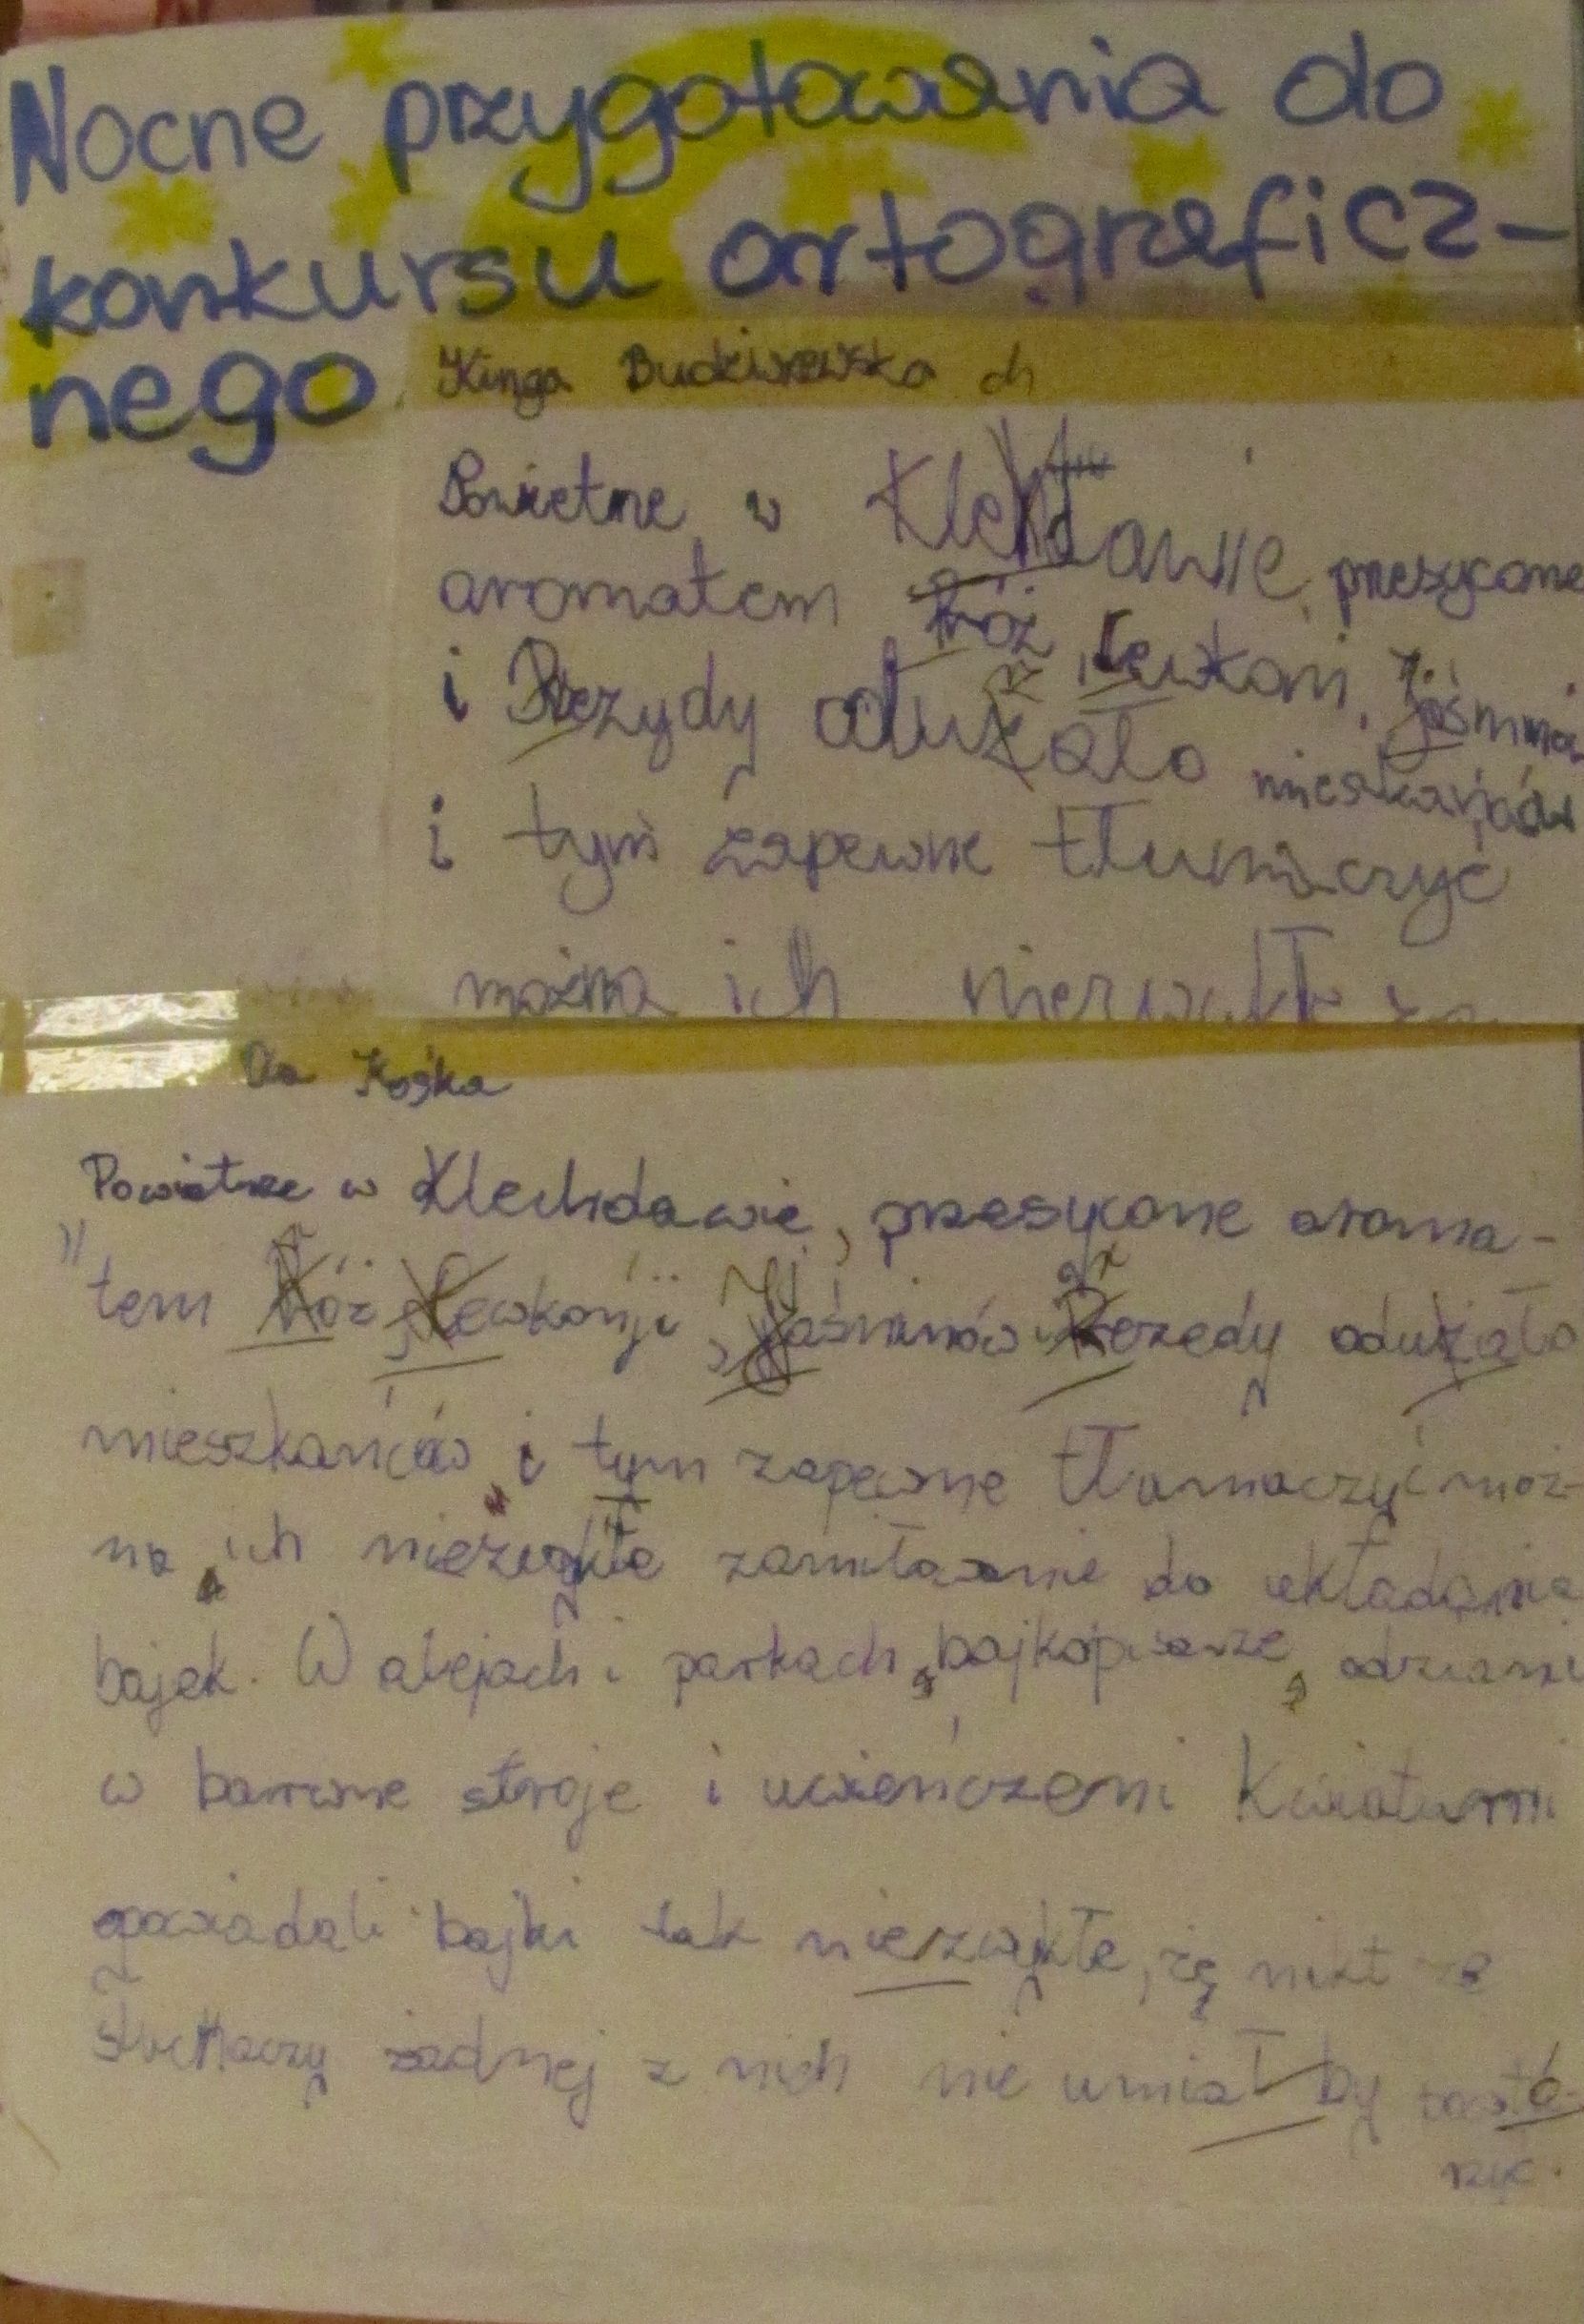 Nocne przygotowania do
konkursu ortograficz-
nego
Kinga
Powietrze w Klechdawie, przesycone
aromatem róż lewkoni, jaśmina
i Rezydy odużało mieszkańców
i tym zapewne tłumaczyć
można ich niezwykłe
Ola Kośka
Powietrze w Klechdawie, przesycone aroma-
tem Róż, Lewkonji, Jaśminów i Rezedy odużało
mieszkańców i tym zapewne tłumaczyć moż-
na ich niezwykłe zamiłowanie do układania
bajek. W alejach i parkach, bajkopisarze, odziani
w barwne stroje i uwieńczeni kwiatami
opowiadali bajki tak niezwykłe, że nikt ze
słuchaczy żadnej z nich nie umiał by powtó-
rzyć.